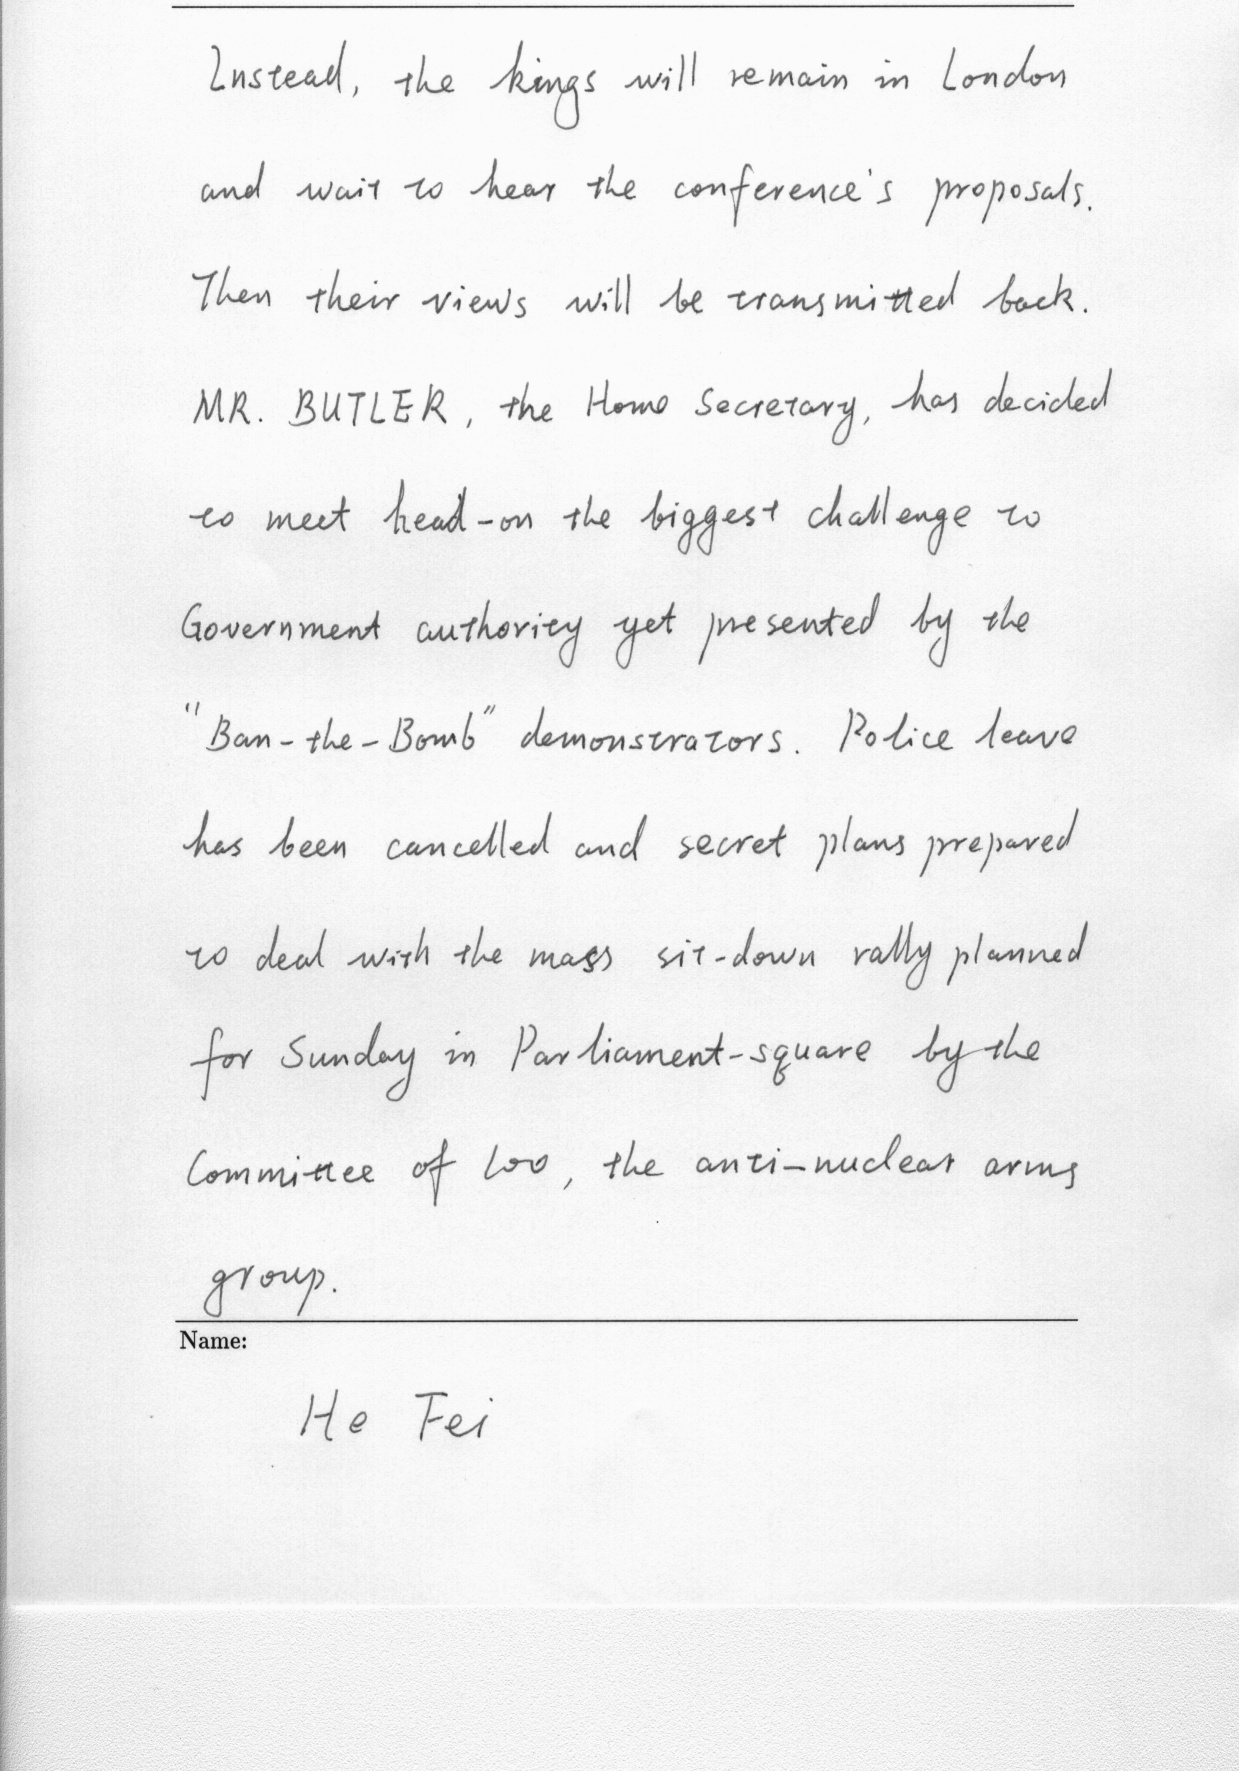 Instead, the kings will remain in London
and wait to hear the conference's proposals.
Then their views will be transmitted back.
MR. BUTLER, the Home Secretary, has decided
to meet head-on the biggest challenge to
Government authority yet presented by the
"Ban-the-Bomb" demonstrators. Police leave
has been cancelled and secret plans prepared
to deal with the mass sit-down rally planned
for Sunday in Parliament-square by the
Committee of 100, the anti-nuclear arms
group.
Name:
He Fei